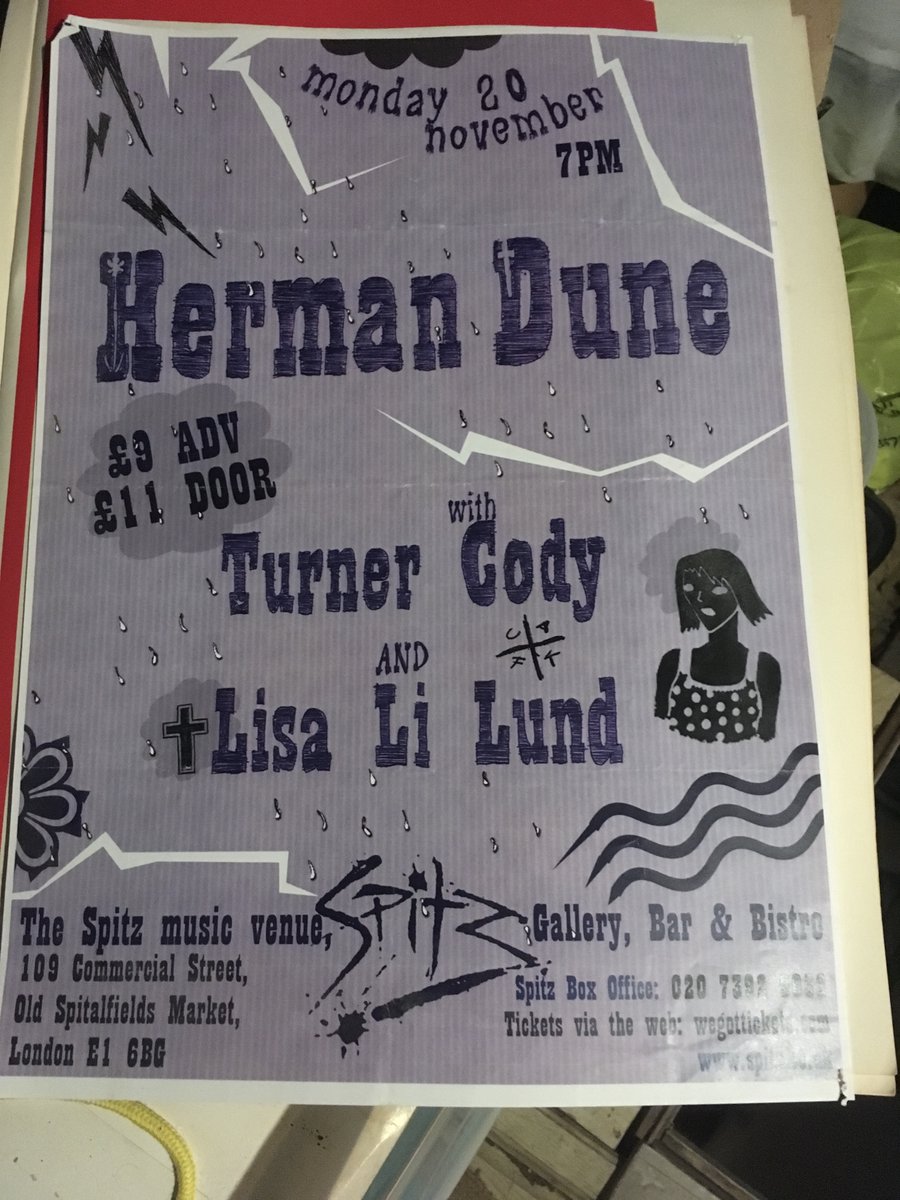 monday 20
november
7PM
Herman Dune
£9 ADV
£11 DOOR
with
Turner Cody
AND
Lisa Li Lund
The Spitz music venue,
109 Commercial Street,
Old Spitalfields Market,
London E1 6BG
Spitz
Gallery, Bar & Bistro
Spitz Box Office: 020 7392
Tickets via the web: wegottickets.com